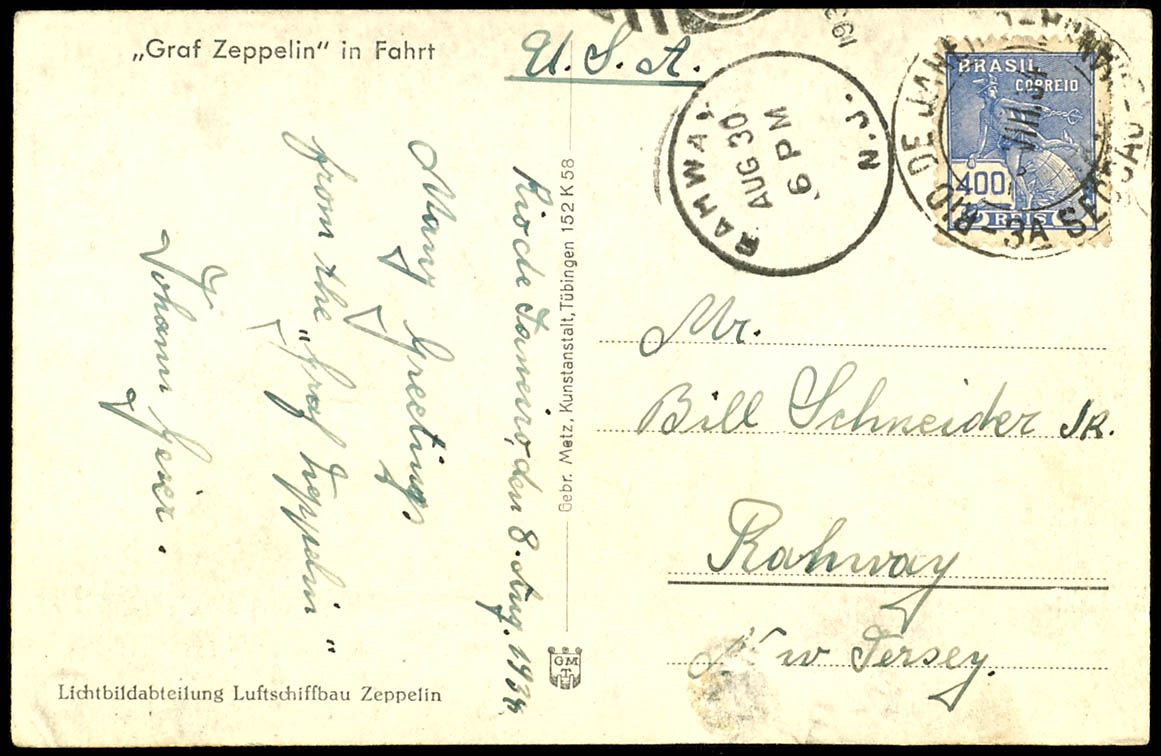 „Graf Zeppelin“ in Fahrt
U. S. A.
Rio de Janeiro, den 8. Aug. 1934
Many Greetings
from the „Graf Zeppelin“
Johann Geier.
Gebr. Metz, Kunstanstalt, Tübingen 152 K 58
GMT
Lichtbildabteilung Luftschiffbau Zeppelin
RAHWAY, N.J.
AUG 30
6 PM
193
BRASIL
CORREIO
400
REIS
RIO DE JANEIRO
3A SECÇAO
Mr.
Bill Schneider Jr.
Rahway
New Jersey.